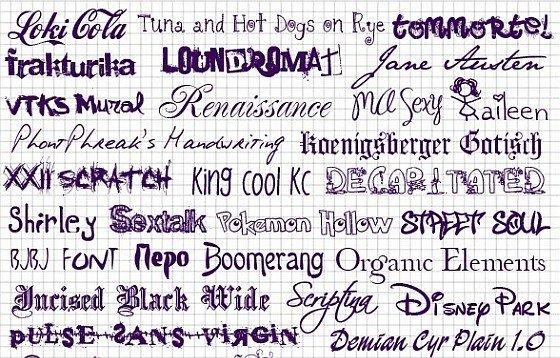 Loki Cola Tuna and Hot Dogs on Rye tommortel
frakturika LOUNDROMAT Jane Austen
VTKS Mural Renaissance MA Sexy Kaileen
PhontPhreak's Handwriting Koenigsberger Gotisch
XXII SCRATCH King Cool KC DECAPITATED
Shirley Sextalk Pokemon Hollow STREET SOUL
BJBJ FONT Перо Boomerang Organic Elements
Incised Black Wide Scripting Disney Park
PULSE SANS ViRGiN Demian Cyr Plain 1.0